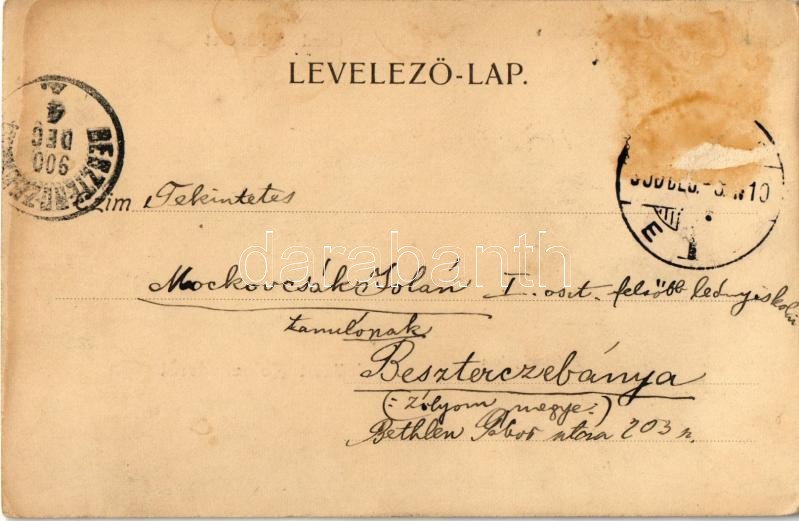 LEVELEZÖ-LAP.
BESZTERCZE
900
DEC
4
900 DEC. -3. N 10
E
Czim Tekintetes
Mockovcsák Jolán I. oszt. felsőbb leányiskolai
tanulónak
Beszterczebánya
(: Zólyom megye :)
Bethlen Gábor utcza 203 n.
darabanth